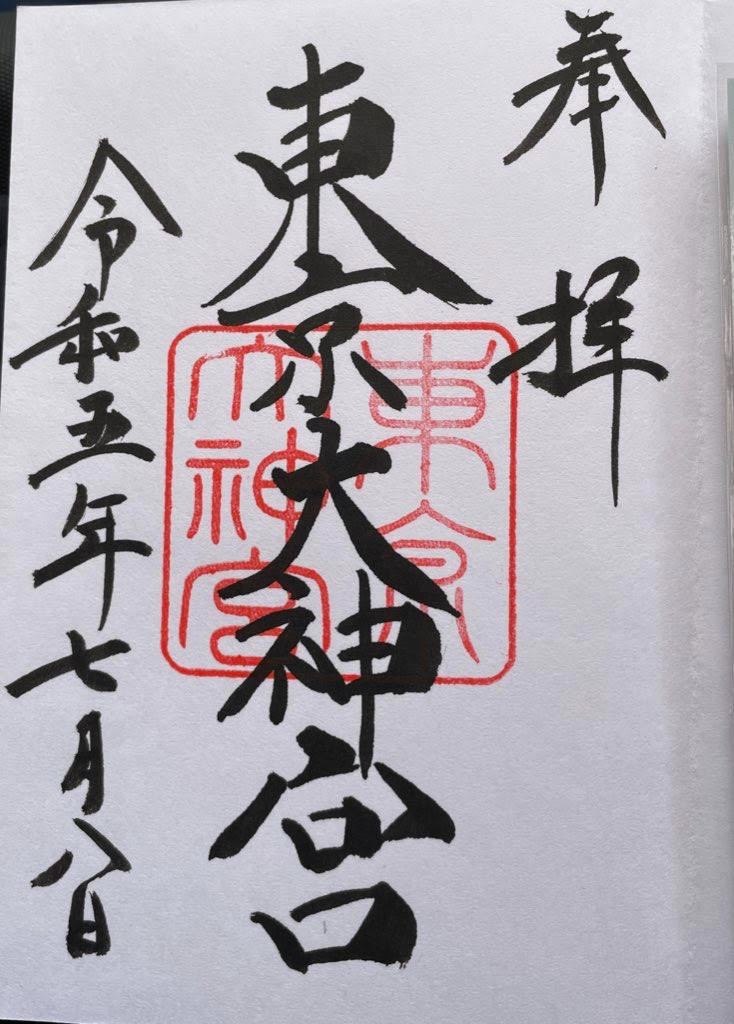 奉拝
東京大神宮
東京
大神宮
令和五年七月八日